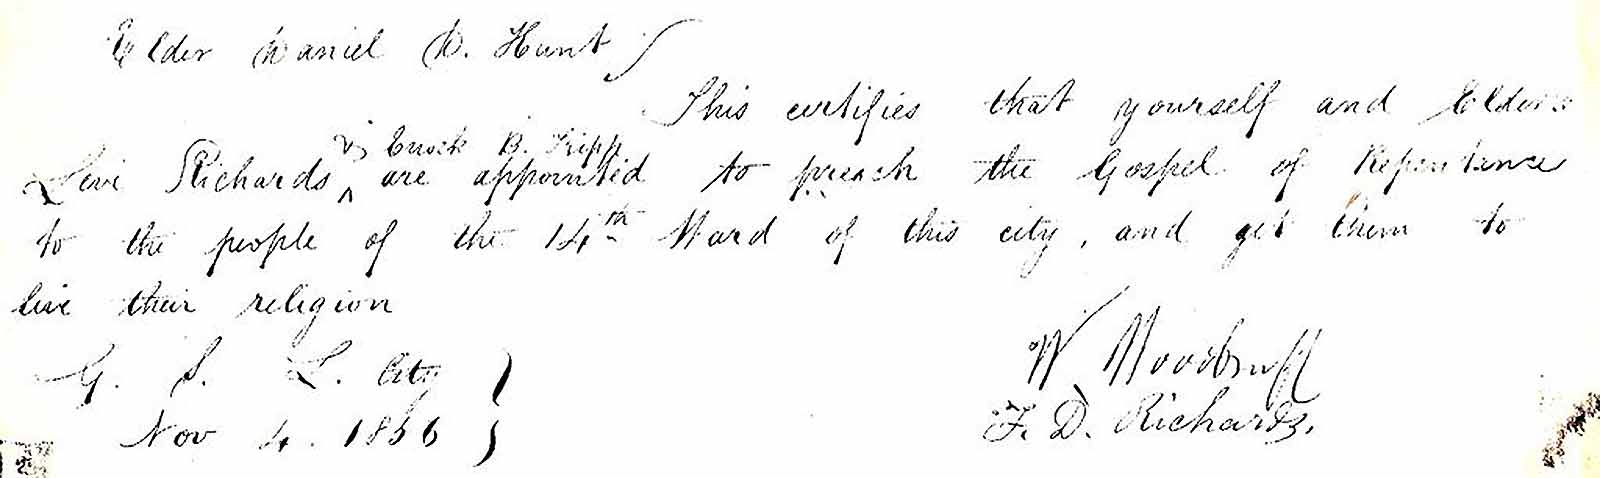 Elder Daniel D. Hunt
This certifies that yourself and Elders
& Enoch B. Tripp
Levi Richards ^ are appointed to preach the Gospel of Repentance
to the people of the 14th Ward of this city, and get them to
live their religion
G. S. L. City
Nov 4. 1856
W Woodruff
F. D. Richards.